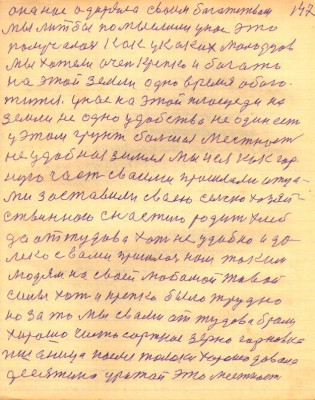 147
она не одаряла своим богатством
мы литбы по мыслили у нас это
получалося как у каких молодцов
мы хотели очен крепко и богато
на этой земли одно время обога-
тится. у нас на этой площеди на
земли не одно удобства не один ест
у этом грунт большая местност
не удобная земля мы и ея как гор
ного част своими пришлали
ми заставили сваею сельско хозяй-
ственного сност его родит хлеб
да от тудова хот не удобно и да-
леко с вами пришлос нам таким
людям на своей любимой такой
силы хот и крепко было трудно
но за то мы с вами от тудова брали
хорошо чисто сортное зерно горновка
пшеница после толоки хорошо давала
десятина урожай это местност